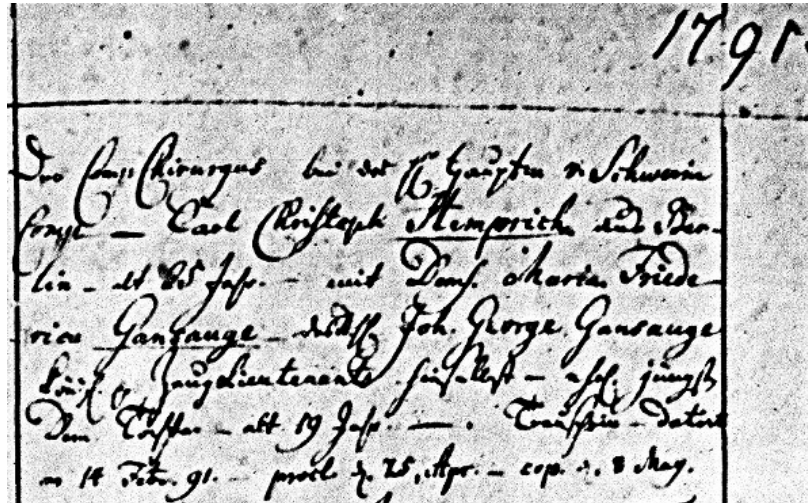 1791.
Der Comp Chirurgus bei des H. Haupten v. Schwerin
Comp — Carl Christoph Hemprich aus Ber-
lin – alt 25 Jahr. – mit Demos. Maria Friede
rica Gansauge – des H. Joh. George Gansauge
Königl. Zeuglieutenants hieselbst – ehel. jüngst
Dem Tochter – alt 19 Jahr —. Trauschein – datirt
14 Febr. 91. – procl. 25. Apr. – cop. 8 May.